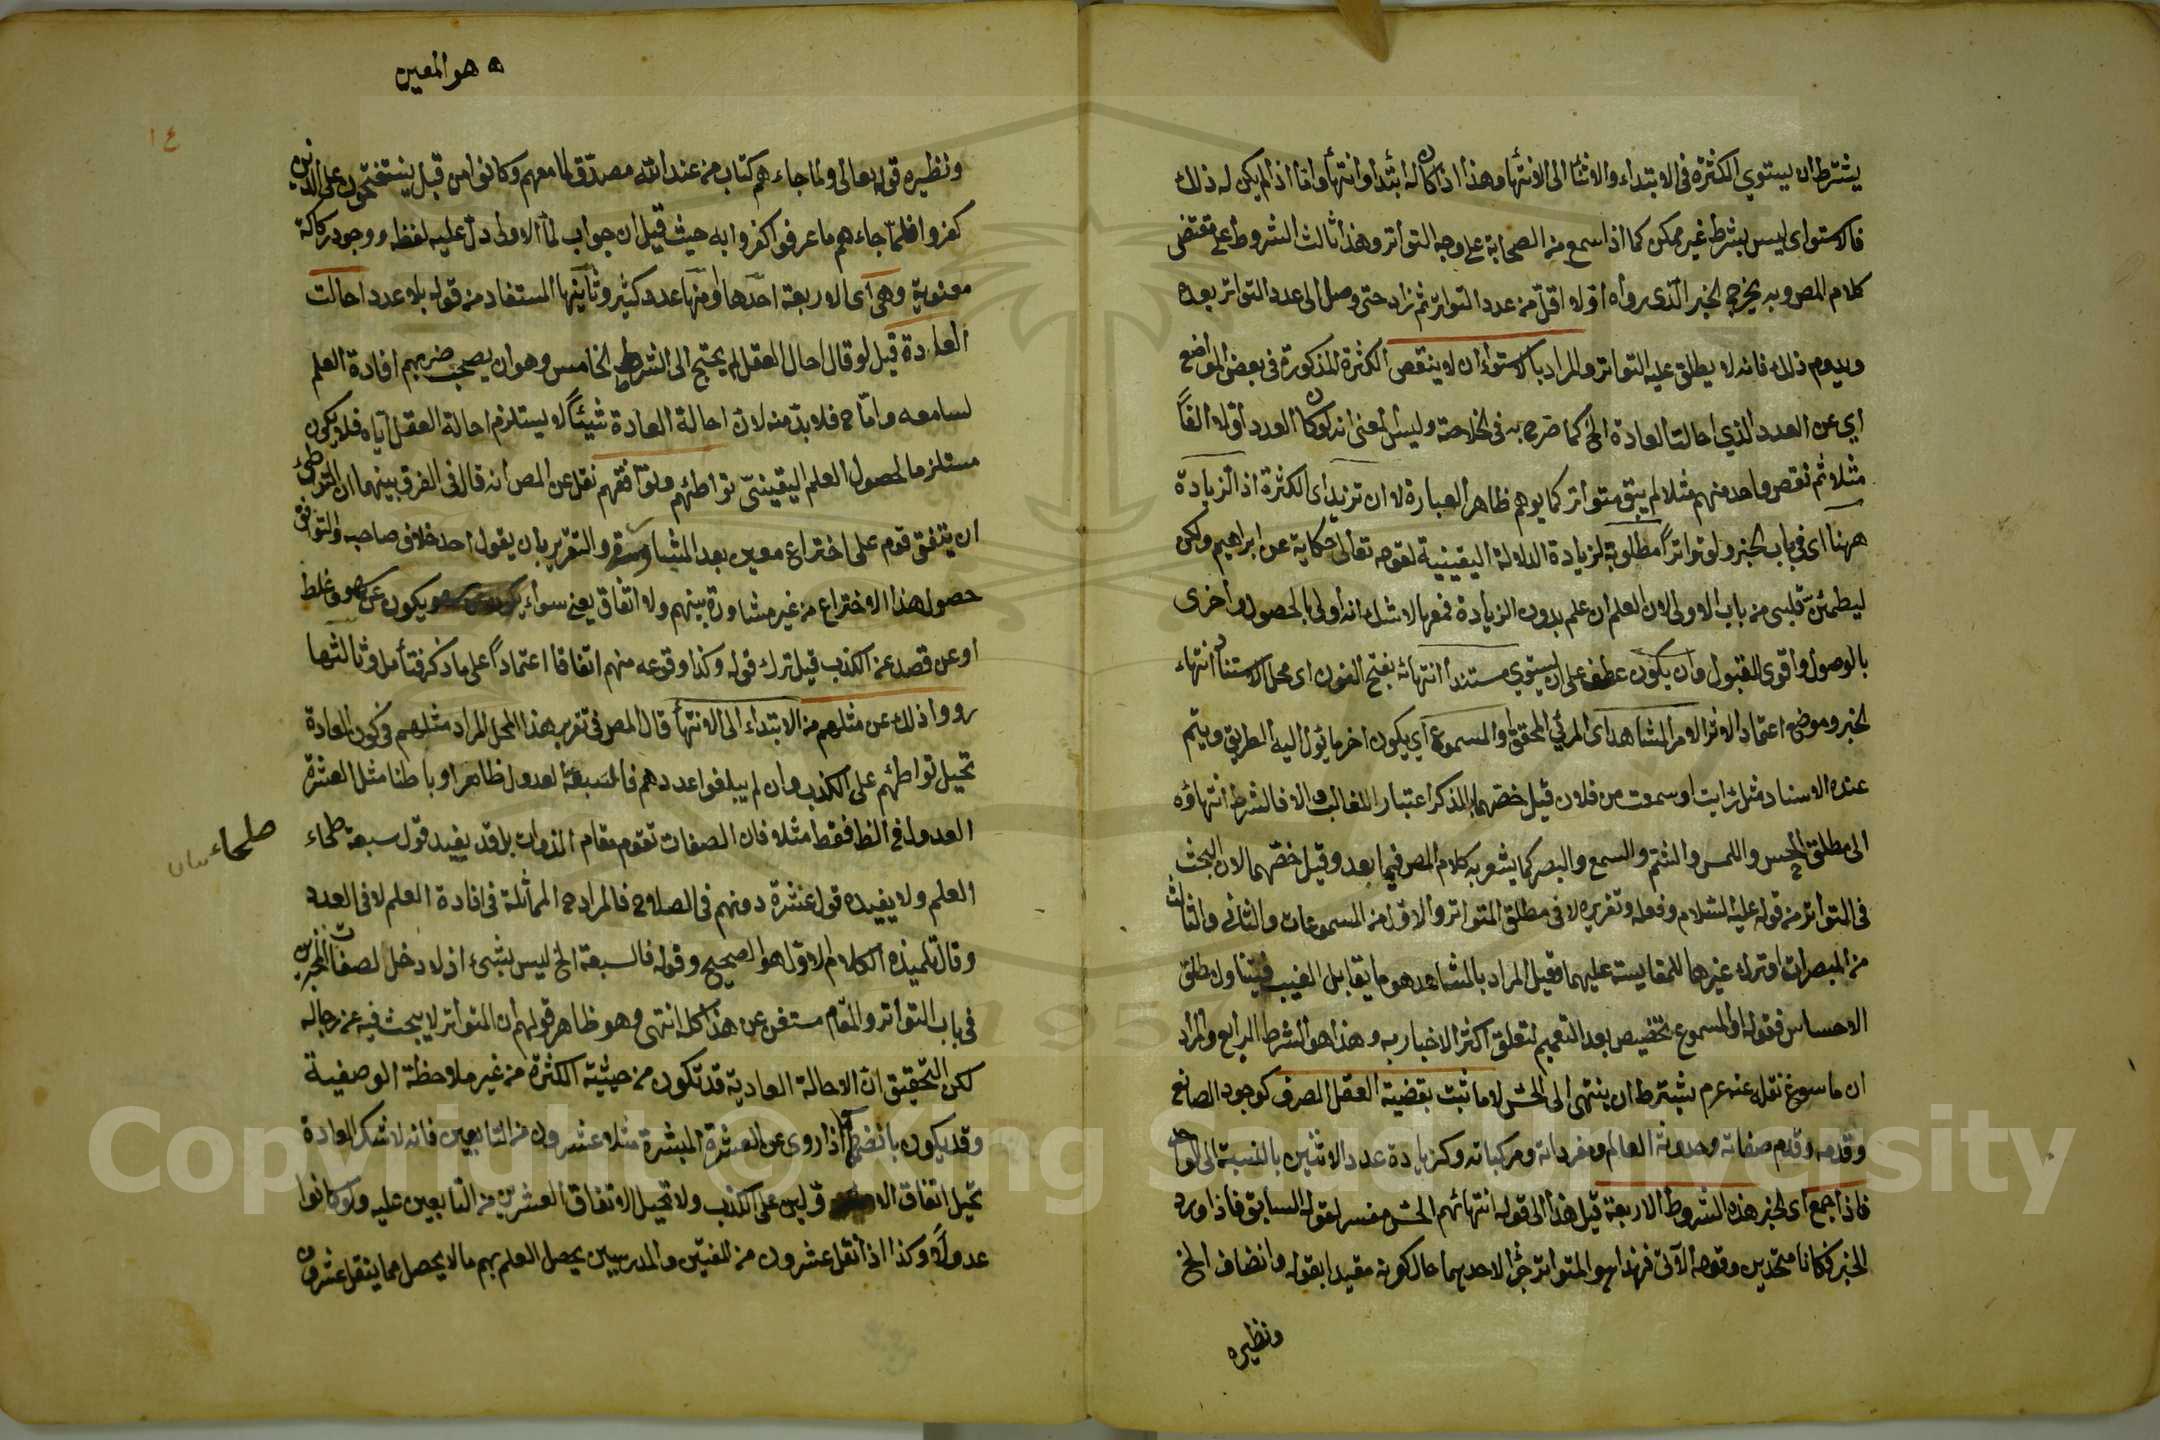 يشترط ان يستوي الكثرة في الابتداء والاثنا الى الانتها وهذا اذا كان له ابتدا وانتها واما اذا لم يكن له ذلك
فالاستواى ليس بشرط غير ممكن كما اذا سمع من الصحابة على وجه التواتر وهذا ثالث الشروط على مقتضى
كلام المص وبه يخرج الخبر الذى رواه اولا اقل من عدد التواتر ثم زاد حتى وصل الى عدد التواتر بعده
ويدوم ذلك فانه لا يطلق عليه التواتر والمراد بالاستواء ان لا ينقص الكثرة المذكورة في بعض المواضع
اي عن العدد الذي احالت العادة الخ كما صرح به في الخلاصة وليس المعنى انه لو كان العدد اولا الفاً
مثلا ثم نقص واحد منهم مثلا لم يبق متواتر كما يوهم ظاهر العبارة لا ان تزيد اى الكثرة اذ الزيادة
ههنا اى في باب الخبر ولو تواتراً مطلوبة لزيادة الدلالة اليقينية لقوله تعالى حكاية عن ابراهيم ولكن
ليطمئن قلبى من باب الاولى لان العلم ان علم بدون الزيادة فمعها لا شك انه اولى بالحصول واخرى
بالوصول واقوى للقبول وان يكون عطف على ان يستوي مستندا انتهائه بفتح النون اى محل الاستنا انتهاء
الخبر وموضع اعتماد الاثر الامر المشاهد اى المرئي المحقق او المسموع اي يكون اخر ما يؤل اليه الطريق ويتم
عنده الاسناد مثل رايت او سمعت من فلان قيل خصهما بالذكر اعتبار اللغالب والا فالشرط انتهاؤه
الى مطلق الحس واللمس والشم والسمع والبصر كما يشعر به كلام المص فيما بعد وقيل خصهما لان البحث
في المتواتر من قوله عليه السلام وفعله وتقريره لا في مطلق المتواتر والاول من المسموعات والثاني والثالث
من المبصرات او ترك غيرها للمقايسة عليهما وقيل المراد بالمشاهد هو ما يقابل الغيب فيتناول مطلق
الاحساس فقوله او المسموع تخصيص بعد التعميم لتعلق اكثر الاخبار به وهذا هو الشرط الرابع والمراد
ان ما سوغ نقله عنه عرم يشترط ان ينتهى الى الحس لا ما ثبت بقضية العقل الصرف كوجود الصانع
وقدمه وقدم صفاته وحدوث العالم ومفرداته ومركباته وكزيادة عدد الاثنين بالنسبة الى الواحد
فاذا جمع اى الخبر هذه الشروط الاربعة قيل هذا الى قوله انتهائهم الحس مفسر لقوله السابق فاذا ورد
الخبر فكانا متحدين وقوله الآتى فهذا هو المتواتر جزا لاحدهما حال كونه مقيدا بقوله وانضاف الخ
ونظيره
ه هو المعين
١٤
ونظيره قوله تعالى ولما جاءهم كتاب من عند الله مصدق لما معهم وكانوا من قبل يستفتحون على الذين
كفروا فلما جاءهم ما عرفوا كفروا به حيث قيل ان جواب لما الاولى دل عليه لفظه ووجوده ركالة
معنوية وهى اى الاربعة احدها او منها عدد كثير وثانيها المستفاد من قوله بلا عدد احالت
العادة قيل لو قال احال العقل لم يحتج الى الشرط الخامس وهو ان يصحب خبرهم افادة العلم
لسامعه واما ح فلا بد منه لان احالة العادة شيئاً لا يستلزم احالة العقل اياه فلا يكون
مستلزما لحصول العلم اليقيني تواطئهم وتوافقهم نقل عن المص انه قال في الفرق بينهما ان التواطئ
ان يتفق قوم على اختراع معين بعد المشاورة والتقرير بان يقول احد خلاف صاحبه والتوافق
حصول هذا الاختراع من غير مشاورة بينهم ولا اتفاق يعنى سواء يكون عن سهو وغلط
او عن قصد عن الكذب قيل ترك قوله وكذا وقوعه منهم اتفاقا اعتماداً على ما ذكر فتأمل وثالثها
رووا ذلك عن مثلهم من الابتداء الى الانتها قال المص في تقرير هذا المحل المراد مثلهم في كون العادة
تحيل تواطئهم على الكذب وان لم يبلغوا عددهم فالسبعة العدول ظاهرا وباطنا مثل العشرة
العدول في الظ فقط مثلا فان الصفات تقوم مقام الذوات بل قد يفيد قول سبعة صلحاء
صلحاء
العلم ولا يفيده قول عشرة دونهم في الصلاح فالمراد ح المماثلة في افادة العلم لا في العدد
وقال تلميذه الكلام الاول هو الصحيح وقوله فالسبعة الخ ليس بشئ اذ لا دخل لصفات المخبرين
في باب التواتر والمقام مستغن عن هذا كله انتهى وهو ظاهر قولهم ان المتواتر لا يبحث فيه عن رجاله
لكن التحقيق ان الاحالة العادية قد تكون من حيثية الكثرة من غير ملاحظة الوصفية
وقد يكون بانضمامها اذا روى عن العشرة المبشرة مثلا عشرون من التابعين فانه لا شك العادة
تحيل اتفاق الاولين على الكذب ولا تحيل الاتفاق العشرين من التابعين عليه ولو كانوا
عدولاً وكذا اذا نقل عشرون من المفتين والمدرسين يحصل العلم بهم ما لا يحصل مما ينقل عشرون
Copyright © King Saud University
1957